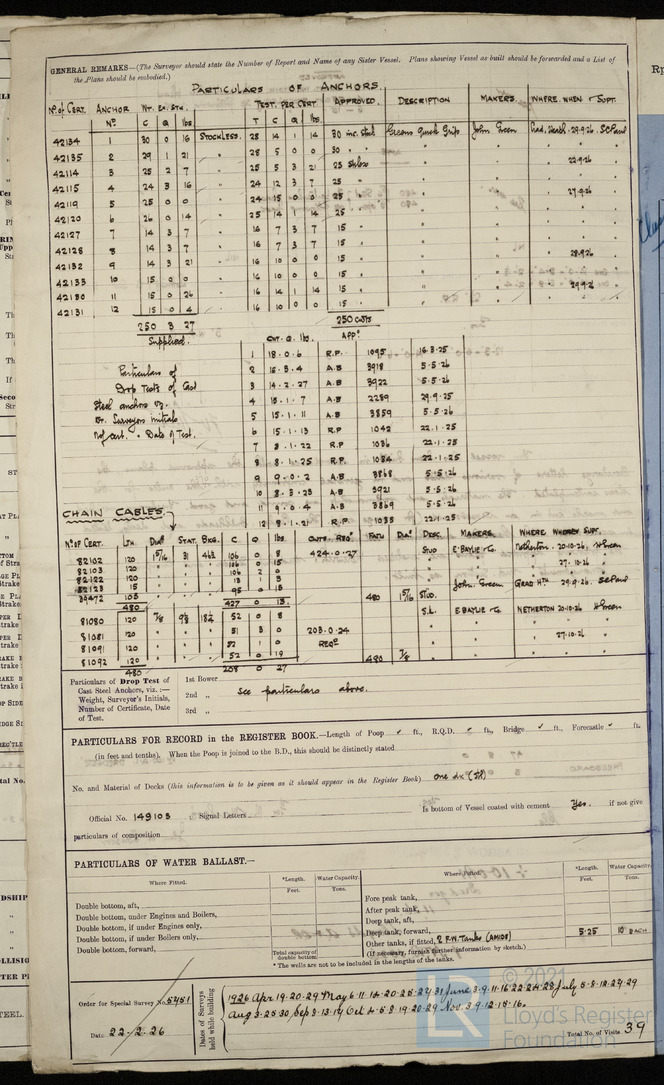 GENERAL REMARKS—(The Surveyor should state the Number of Report and Name of any Sister Vessel. Plans showing Vessel as built should be forwarded and a List of
the Plans should be embodied.)
PARTICULARS OF ANCHORS.
No. of Cert. ANCHOR WT. EX. STK. TEST. PER CERT APPROVED. DESCRIPTION MAKERS. WHERE. WHEN & SUPT.
No. C Q lbs T C Q lbs.
42134 1 30 0 16 STOCKLESS. 28 14 1 14 30 inc. stock Greens Quick Grip. John Green Crad. Heath. 29.9.26. SC Paul
42135 2 29 1 21 " 28 5 0 0 30 "
42114 3 25 2 7 " 25 5 3 21 25 22.9.26
42115 4 24 3 16 " 24 12 3 7 25 "
42119 5 25 0 0 " 24 15 0 0 25 " 27.9.26
42120 6 26 0 14 " 25 14 1 14 25
42127 7 14 3 7 " 16 7 3 7 15 "
42128 8 14 3 7 " 16 7 3 7 15 "
42132 9 14 3 21 " 16 10 0 0 15 " 28.9.26
42133 10 15 0 0 " 16 10 0 0 15 "
42130 11 15 0 26 " 16 14 1 14 15 " 29.9.26
42131 12 15 0 4 " 16 10 0 0 15 "
250 3 27 250 cwts
Supplied. App.
Cwt. Q. lbs.
1 18.0.6 R.P. 1095 16.3.25
Particulars of 2 16.3.4 A.B 3918 5.5.26
Drop Tests of Cast 3 14.2.27 A.B 3922 5.5.26
Steel anchors viz. 4 15.1.7 A.B 2289 29.9.25
Wt. Surveyors initials 5 15.1.11 A.B 3859 5.5.26
No. of cert. & Date of Test. 6 15.1.13 R.P 1042 22.1.25
7 8.1.22 R.P 1036 22.1.25
8 8.1.25 R.P. 1034 22.1.25
9 9.0.2 A.B 3868 5.5.26
10 8.3.23 A.B 3921 5.5.26
11 9.0.4 A.B 3869 5.5.26
12 8.1.21 R.P 1035 22.1.25
CHAIN CABLES
No. of Cert. LTH. Diam. STAT. Bkg. C Q lbs Cwts. Reqd. FATH Dia. Desc. MAKERS WHERE WHEN & SUPT.
82102 120 15/16 31 106 0 8 424.0.27 STUD E BAYLIE & Co. Netherton. 20.10.26.
82103 120 " " 106 0 15
82122 120 " " 106 2 0 27.10.26
82123 15 13 1 3
39472 105 95 0 15 480 15/16 STUD. John Green CRAD HTH 29.9.26. SC Paul
480 427 0 13.
81080 120 7/8 52 0 8 S.L. E BAYLIE & Co NETHERTON 20.10.26
81081 120 " 51 3 0 203.0.24
81091 120 " 52 1 0 REQD 27.10.26
81092 120 52 0 19 480 7/8
480 208 0 27
Particulars of Drop Test of
Cast Steel Anchors, viz. :—
Weight, Surveyor's Initials,
Number of Certificate, Date
of Test.
1st Bower
2nd " see particulars above.
3rd "
PARTICULARS FOR RECORD in the REGISTER BOOK.—Length of Poop ✓ ft., R.Q.D. ✓ ft., Bridge ✓ ft., Forecastle ✓ ft.
(in feet and tenths). When the Poop is joined to the B.D., this should be distinctly stated
No. and Material of Decks (this information is to be given as it should appear in the Register Book) one dk (stl)
Official No. 149103 Signal Letters Is bottom of Vessel coated with cement Yes. if not give
particulars of composition
PARTICULARS OF WATER BALLAST.—
Where Fitted. *Length. Feet. Water Capacity. Tons. Where Fitted. *Length. Feet. Water Capacity. Tons.
Double bottom, aft,
Double bottom, under Engines and Boilers,
Double bottom, if under Engines only,
Double bottom, if under Boilers only,
Double bottom, forward,
Total capacity of double bottom
Fore peak tank,
After peak tank,
Deep tank, aft,
Deep tank, forward,
Other tanks, if fitted, 2 F.W. Tanks (AMIDS) 5.25 10 EACH
(If necessary, furnish further information by sketch.)
* The wells are not to be included in the lengths of the tanks.
Order for Special Survey No. 5451
Date 22.2.26
Dates of Surveys held while building
1926 Apr 19.20.29 May 6.11.14.20.25.27.31 June 3.9.11.16.22.24.28 July 5.8.12.27.29
Aug 3.25.30, Sep 3.13.17 Oct 4.5.8.19.20.29 Nov. 3.9.12.15.16.
Total No. of Visits 39
© 2021
Lloyd's Register
Foundation
LR